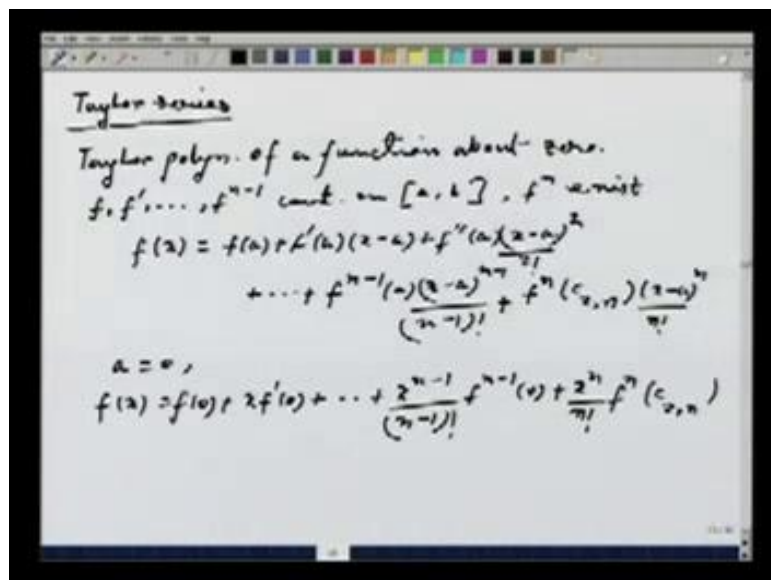 Taylor series
Taylor polyn. of a function about zero.
f, f', ..., f^{n-1} cont. on [a, b], f^n exist
f(x) = f(a) + f'(a)(x-a) + f''(a)\frac{(x-a)^2}{2!}
+ ... + f^{n-1}(a)\frac{(x-a)^{n-1}}{(n-1)!} + f^n(c_{x,n})\frac{(x-a)^n}{n!}
a = 0,
f(x) = f(0) + x f'(0) + ... + \frac{x^{n-1}}{(n-1)!} f^{n-1}(0) + \frac{x^n}{n!} f^n(c_{x,n})